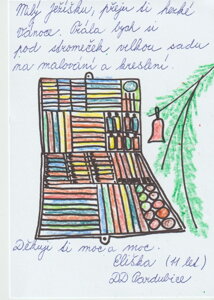 Milý Ježíšku, přeju ti hezké
Vánoce. Přála bych si
pod stromeček velkou sadu
na malování a kreslení.
Děkuji ti moc a moc.
Eliška (11 let)
DD Pardubice